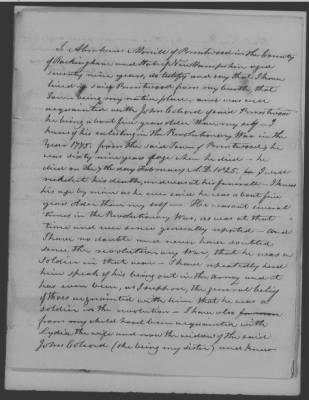 I, Abraham Morrill of Brentwood in the County
of Rockingham and State of New Hampshire aged
seventy nine years, do testify and say that I have
lived in said Brentwood from my birth, that
Town being my native place, and was well
acquainted with John Colcord of said Brentwood
he being about five years older than my self – I
knew of his enlisting in the Revolutionary War in the
Year 1775. from the said Town of Brentwood, he
was sixty nine years of age when he died – he
died on the 7th day February A.D. 1825. for I well
recollect his death, and was at his funeral – I knew
his age by mine as he was said he was about five
years older than my self – He went several
times in the Revolutionary War, as was at that
time and ever since generally reported – And
I have no doubt and never have doubted
since the revolutionary War, that he was a
Soldier in that war – I have repeatedly heard
him speak of his being out in the Army and it
has ever been, as I suppose, the general belief
of those acquainted with him that he was a
soldier in the revolution – I have also
from my childhood been acquainted with
Lydia the wife and now the widow of the said
John Colcord (she being my sister) and knew